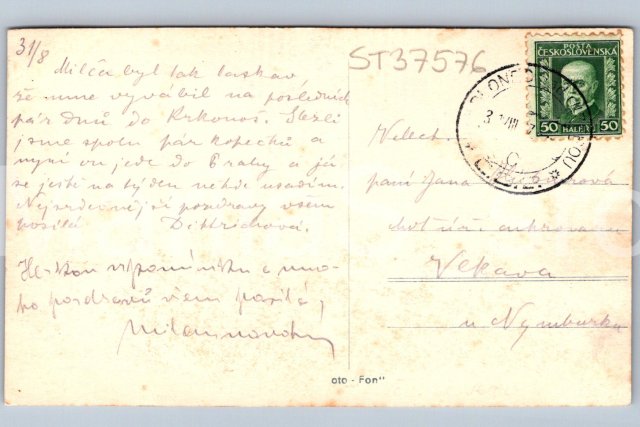 31/8
ST37576
Milča byl tak laskav
že mne vyvábil na posledních
pár dnů do Krkonoš. Slezli
jsme spolu pár kopečků a
nyní on jede do Prahy a já
se ještě na týden někde usadím.
Nejsrdečnější pozdravy všem
posílá Dittrichová.
vzpomínku a mno-
ho pozdravů všem posílá
POŠTA
ČESKOSLOVENSKÁ
50 HALÉŘŮ 50
Velect.
paní Jana
choť
Velava
u Nymburka
oto - Fon"